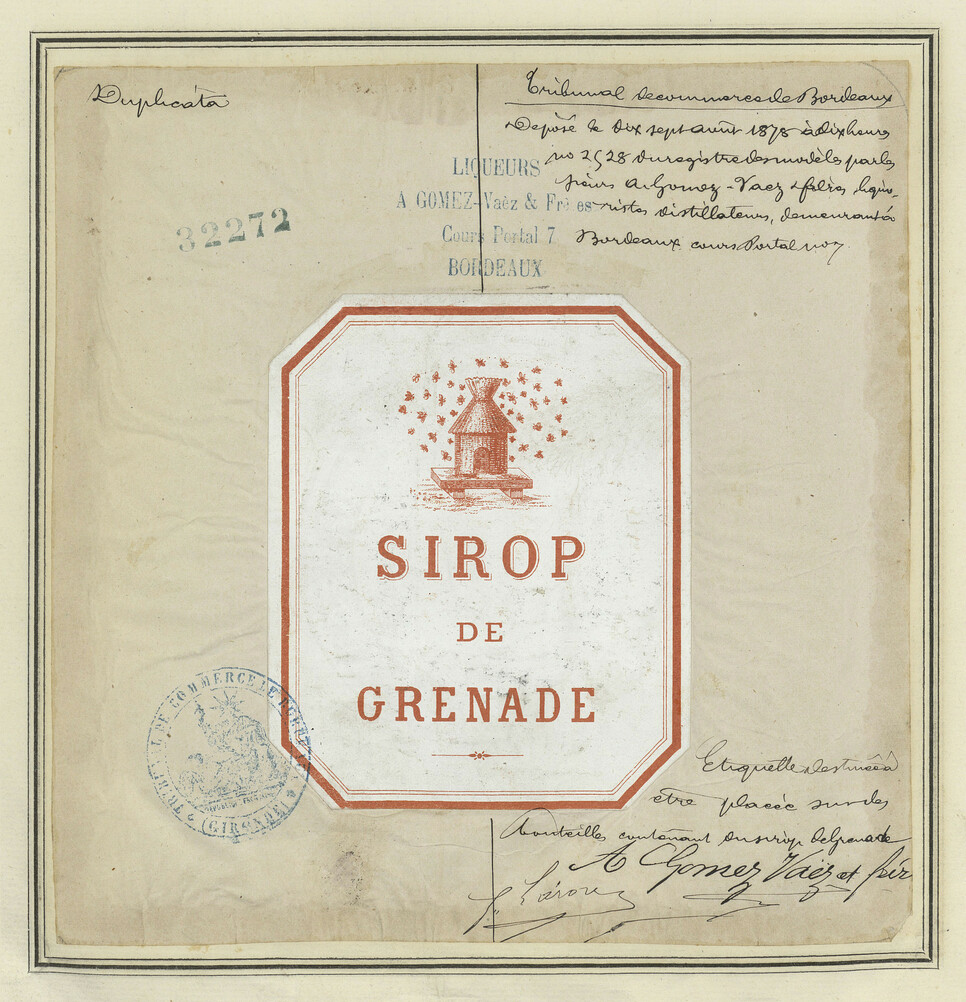 Duplicata
Tribunal de commerce de Bordeaux
Déposé le dix sept août 1878 à dix heures
no 2528 du registre des modèles par les
sieurs A. Gomez-Vaez & frères liquo-
ristes distillateurs, demeurant à
Bordeaux cours Portal no 7.
32272
LIQUEURS
A GOMEZ-Vaèz & Frères
Cours Portal 7
BORDEAUX
SIROP
DE
GRENADE
TRIBUNAL DE COMMERCE DE BORDEAUX
(GIRONDE)
Etiquette destinée à
être placée sur des
bouteilles contenant du sirop de Grenade
A Gomez Vaëz et frèr